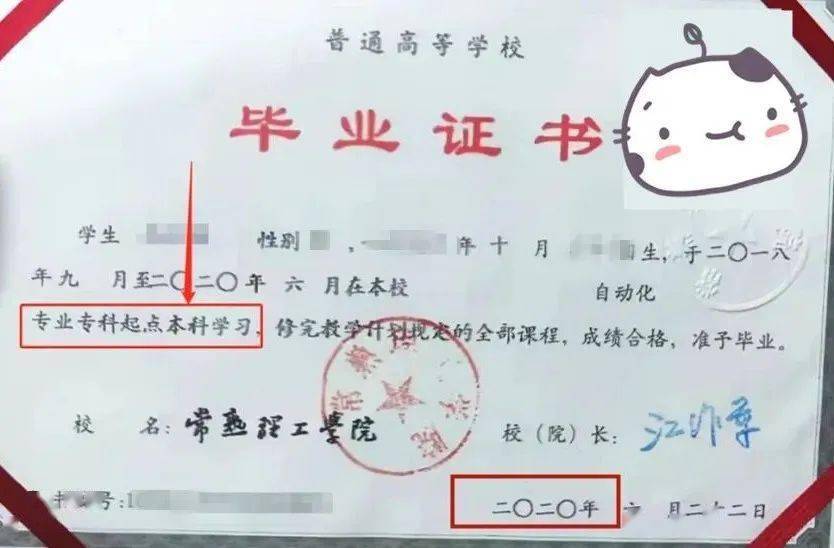 普通高等学校
毕业证书
学生 性别 , 年十月 生,于二〇一八
年九月至二〇二〇年六月在本校 自动化
专业专科起点本科学习,修完教学计划规定的全部课程,成绩合格,准予毕业。
校名:常熟理工學院 校(院)长:江作军
书编号:1
二〇二〇年六月二十二日